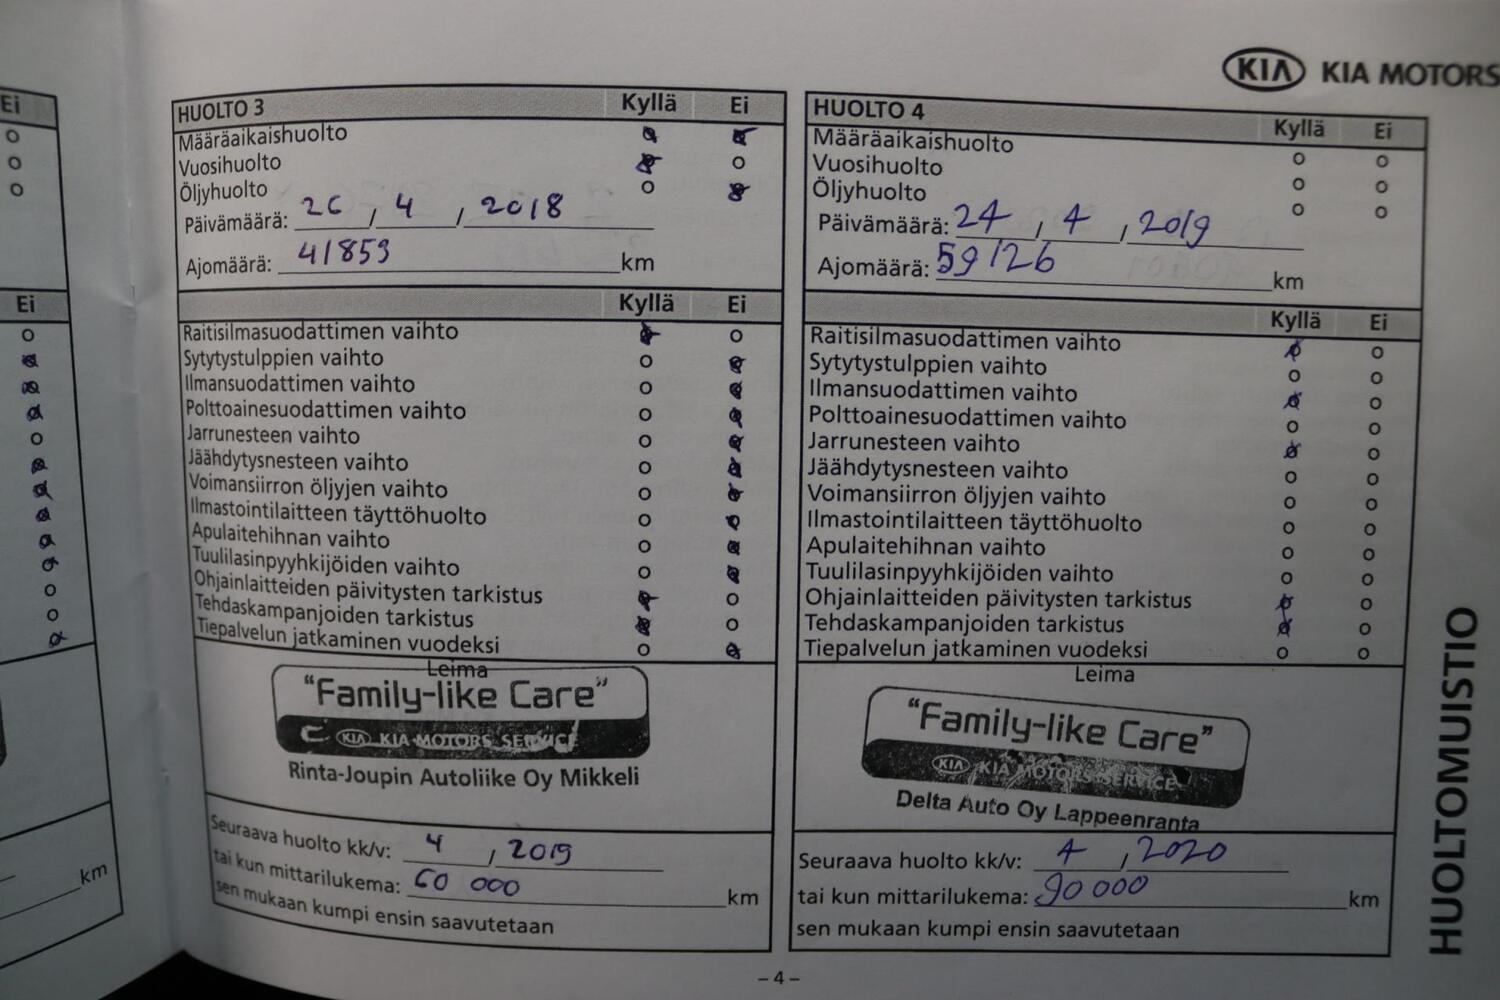 Ei
Ei
km
KIA KIA MOTORS
HUOLTO 3 Kyllä Ei
Määräaikaishuolto
Vuosihuolto
Öljyhuolto
Päivämäärä: 26, 4, 2018
Ajomäärä: 41853 km
Kyllä Ei
Raitisilmasuodattimen vaihto
Sytytystulppien vaihto
Ilmansuodattimen vaihto
Polttoainesuodattimen vaihto
Jarrunesteen vaihto
Jäähdytysnesteen vaihto
Voimansiirron öljyjen vaihto
Ilmastointilaitteen täyttöhuolto
Apulaitehihnan vaihto
Tuulilasinpyyhkijöiden vaihto
Ohjainlaitteiden päivitysten tarkistus
Tehdaskampanjoiden tarkistus
Tiepalvelun jatkaminen vuodeksi
Leima
"Family-like Care"
KIA KIA MOTORS SERVICE
Rinta-Joupin Autoliike Oy Mikkeli
Seuraava huolto kk/v: 4, 2019
tai kun mittarilukema: 60 000 km
sen mukaan kumpi ensin saavutetaan
HUOLTO 4 Kyllä Ei
Määräaikaishuolto
Vuosihuolto
Öljyhuolto
Päivämäärä: 24, 4, 2019
Ajomäärä: 59126 km
Kyllä Ei
Raitisilmasuodattimen vaihto
Sytytystulppien vaihto
Ilmansuodattimen vaihto
Polttoainesuodattimen vaihto
Jarrunesteen vaihto
Jäähdytysnesteen vaihto
Voimansiirron öljyjen vaihto
Ilmastointilaitteen täyttöhuolto
Apulaitehihnan vaihto
Tuulilasinpyyhkijöiden vaihto
Ohjainlaitteiden päivitysten tarkistus
Tehdaskampanjoiden tarkistus
Tiepalvelun jatkaminen vuodeksi
Leima
"Family-like Care"
KIA KIA MOTORS SERVICE
Delta Auto Oy Lappeenranta
Seuraava huolto kk/v: 4, 2020
tai kun mittarilukema: 90 000 km
sen mukaan kumpi ensin saavutetaan
HUOLTOMUISTIO
– 4 –